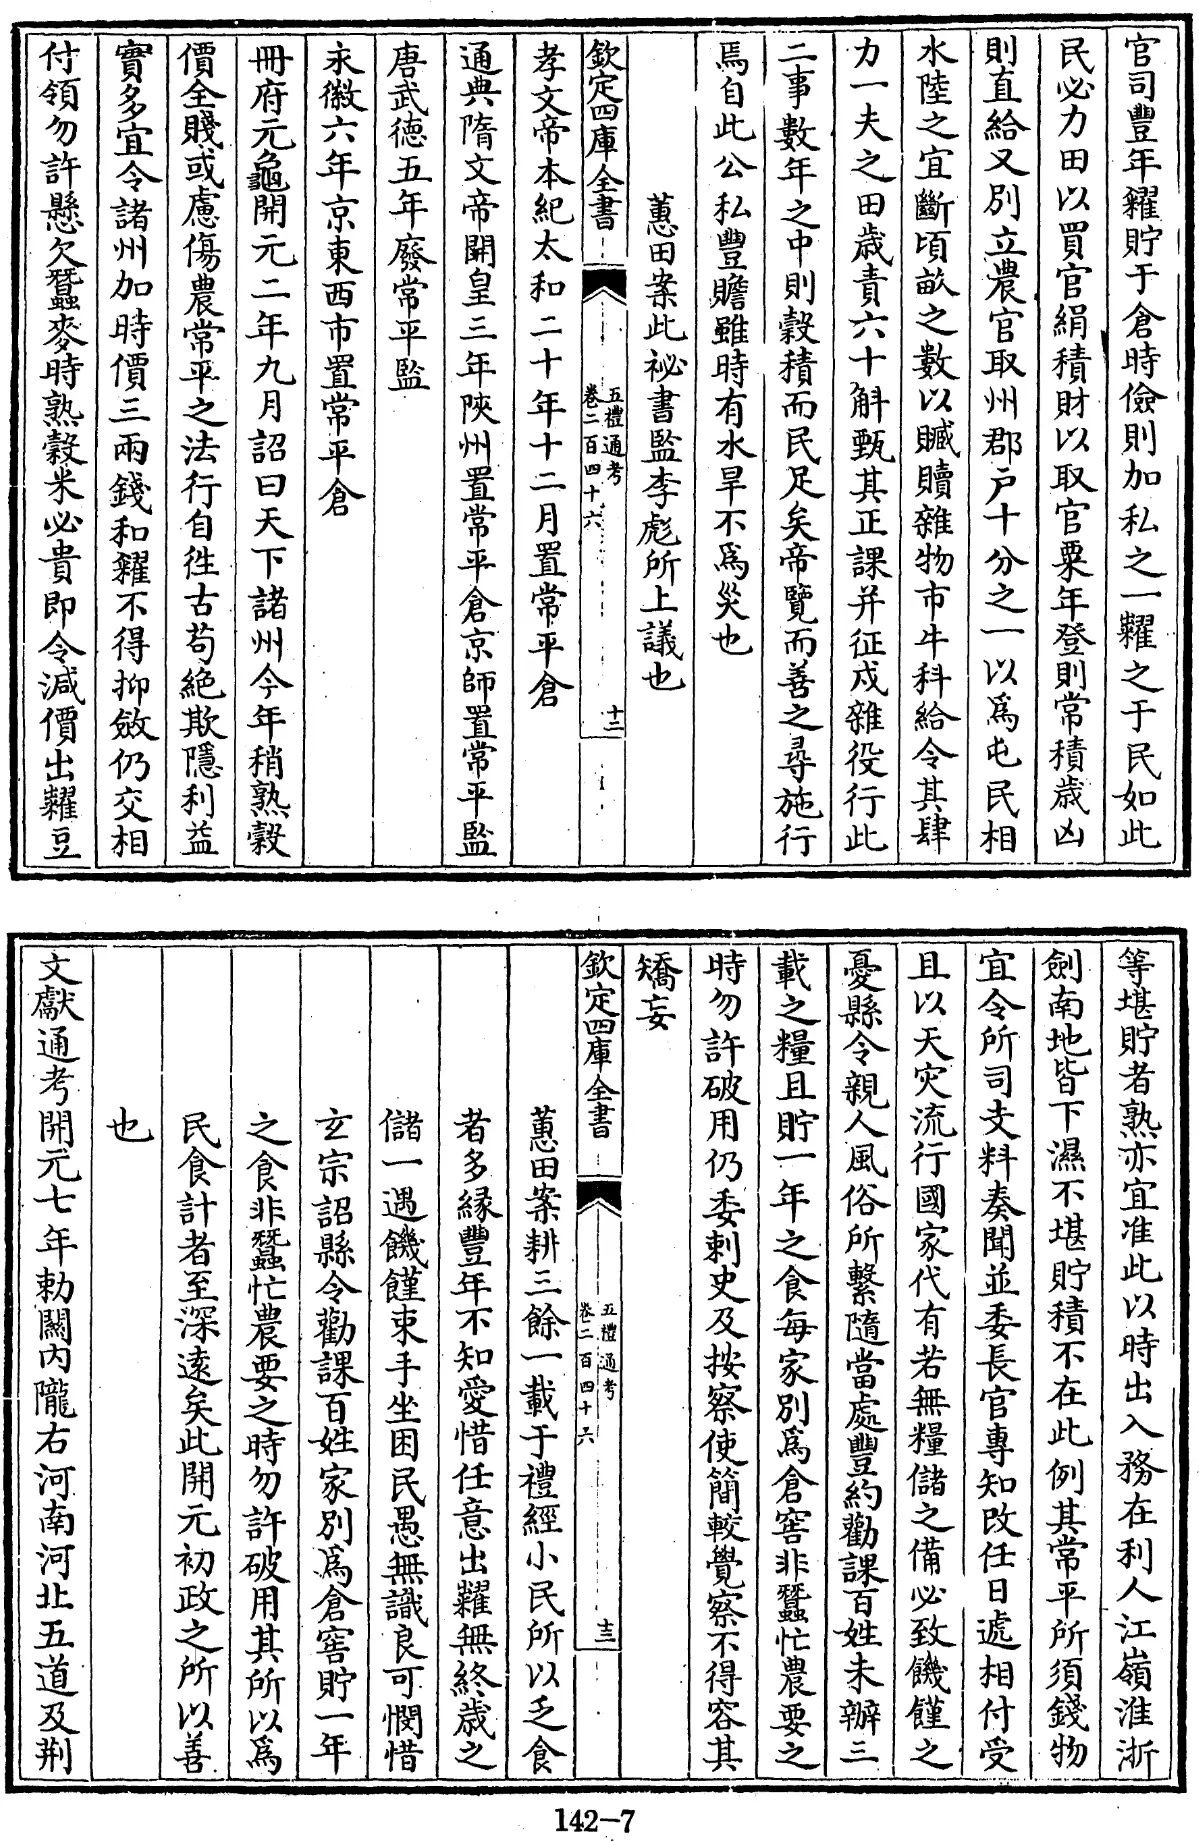 官司豐年糴貯于倉時儉則加私之一糶之于民如此
民必力田以買官絹積財以取官粟年登則常積歲凶
則直給又別立農官取州郡戶十分之一以爲屯民相
水陸之宜斷頃畝之數以贓贖雜物市牛科給令其肆
力一夫之田歲責六十斛甄其正課并征戍雜役行此
二事數年之中則穀積而民足矣帝覽而善之尋施行
焉自此公私豐贍雖時有水旱不爲災也
蕙田案此祕書監李彪所上議也
欽定四庫全書
五禮通考
卷二百四十六
十二
孝文帝本紀太和二十年十二月置常平倉
通典隋文帝開皇三年陝州置常平倉京師置常平監
唐武德五年廢常平監
永徽六年京東西市置常平倉
冊府元龜開元二年九月詔曰天下諸州今年稍熟穀
價全賤或慮傷農常平之法行自徃古苟絶欺隱利益
實多宜令諸州加時價三兩錢和糴不得抑斂仍交相
付領勿許懸欠蠶麥時熟穀米必貴即令減價出糶豆
等堪貯者熟亦宜准此以時出入務在利人江嶺淮浙
劍南地皆下濕不堪貯積不在此例其常平所須錢物
宜令所司支料奏聞並委長官專知改任日遞相付受
且以天灾流行國家代有若無糧儲之備必致饑饉之
憂縣令親人風俗所繫隨當處豐約勸課百姓未辦三
載之糧且貯一年之食每家別爲倉窖非蠶忙農要之
時勿許破用仍委刺史及按察使簡較覺察不得容其
矯妄
欽定四庫全書
五禮通考
卷二百四十六
十三
蕙田案耕三餘一載于禮經小民所以乏食
者多縁豐年不知愛惜任意出糶無終歲之
儲一遇饑饉束手坐困民愚無識良可憫惜
玄宗詔縣令勸課百姓家別爲倉窖貯一年
之食非蠶忙農要之時勿許破用其所以爲
民食計者至深遠矣此開元初政之所以善
也
文獻通考開元七年勅關内隴右河南河北五道及荆
142-7